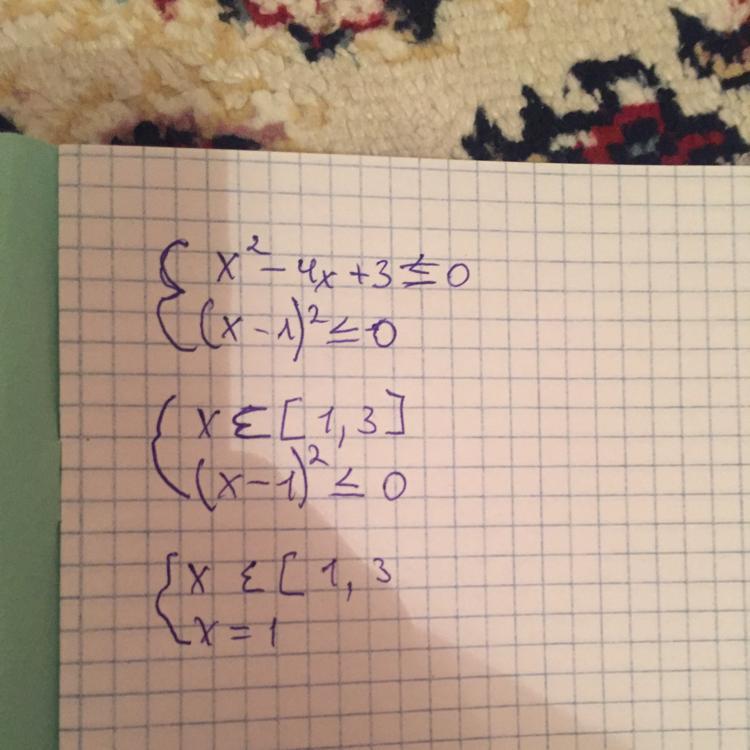 { x² - 4x + 3 ≤ 0
(x - 1)² ≤ 0
{ x ∈ [1, 3]
(x - 1)² ≤ 0
{ x ∈ [1, 3
x = 1